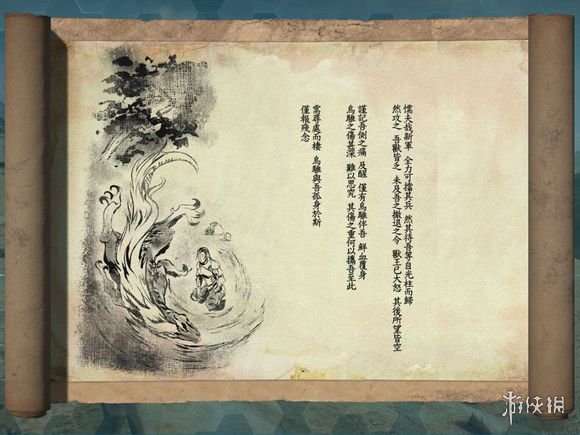 懦夫哉新軍　全力可擋其兵　然其待吾等自光柱而歸
然攻之　吾獸皆乏　未及吾之撤退之令　獸王已大怒　其後所望皆空
謹記吾側之痛　及醒　僅有烏騅伴吾　鮮血覆身
烏騅之傷甚深　難以思究　其傷之重何以攜吾至此
需尋處而棲　烏騅與吾孤身於斯
僅報殘念
游侠网